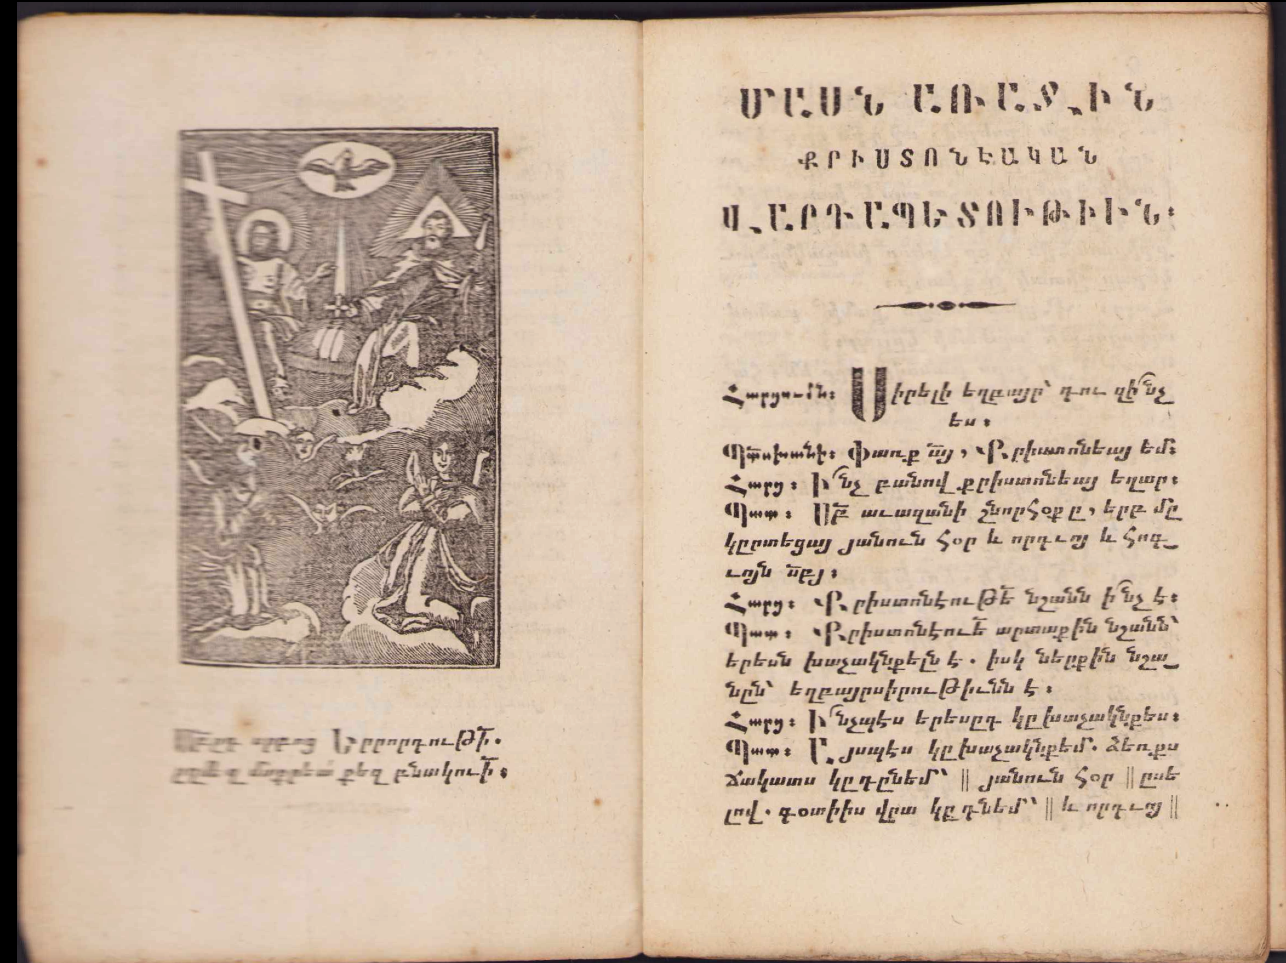 ՄԱՍՆ ԱՌԱՋԻՆ
ՔՐԻՍՏՈՆԷԱԿԱՆ
ՎԱՐԴԱՊԵՏՈՒԹԻԻՆ։
Հարցումն։ Սիրելի եղբայր՝ դու զի՞նչ
ես։
Պտսխանի։ Փառք ա՟յ, Քրիստոնեայ եմ։
Հարց։ Ի՞նչ բանով քրիստոնեայ եղար։
Պատ։ Սբ՟ աւազանի շնորհօքը, երբ մը
կըրտեցայ յանուն հօր և որդւոյ և հոգ_
ւոյն սբյ՟։
Հարց։ Քրիստոնէութե՟ նշանն ի՞նչ է։
Պատ։ Քրիստոնէուե՟ արտաքին նշանն՝
երեսն խաչակնքելն է. իսկ ներքին նշա_
նըն՝ եղբայրսիրութիւնն է։
Հարց։ Ի՞նչպէս երեսըդ կը խաչակնքես։
Պատ։ Այսպէս կը խաչակնքեմ. ձեռքս
ճակատս կը դընեմ՝ || յանուն հօր || ըսե
լով. գօտիիս վրա կը դնեմ՝ || և որդւոյ ||